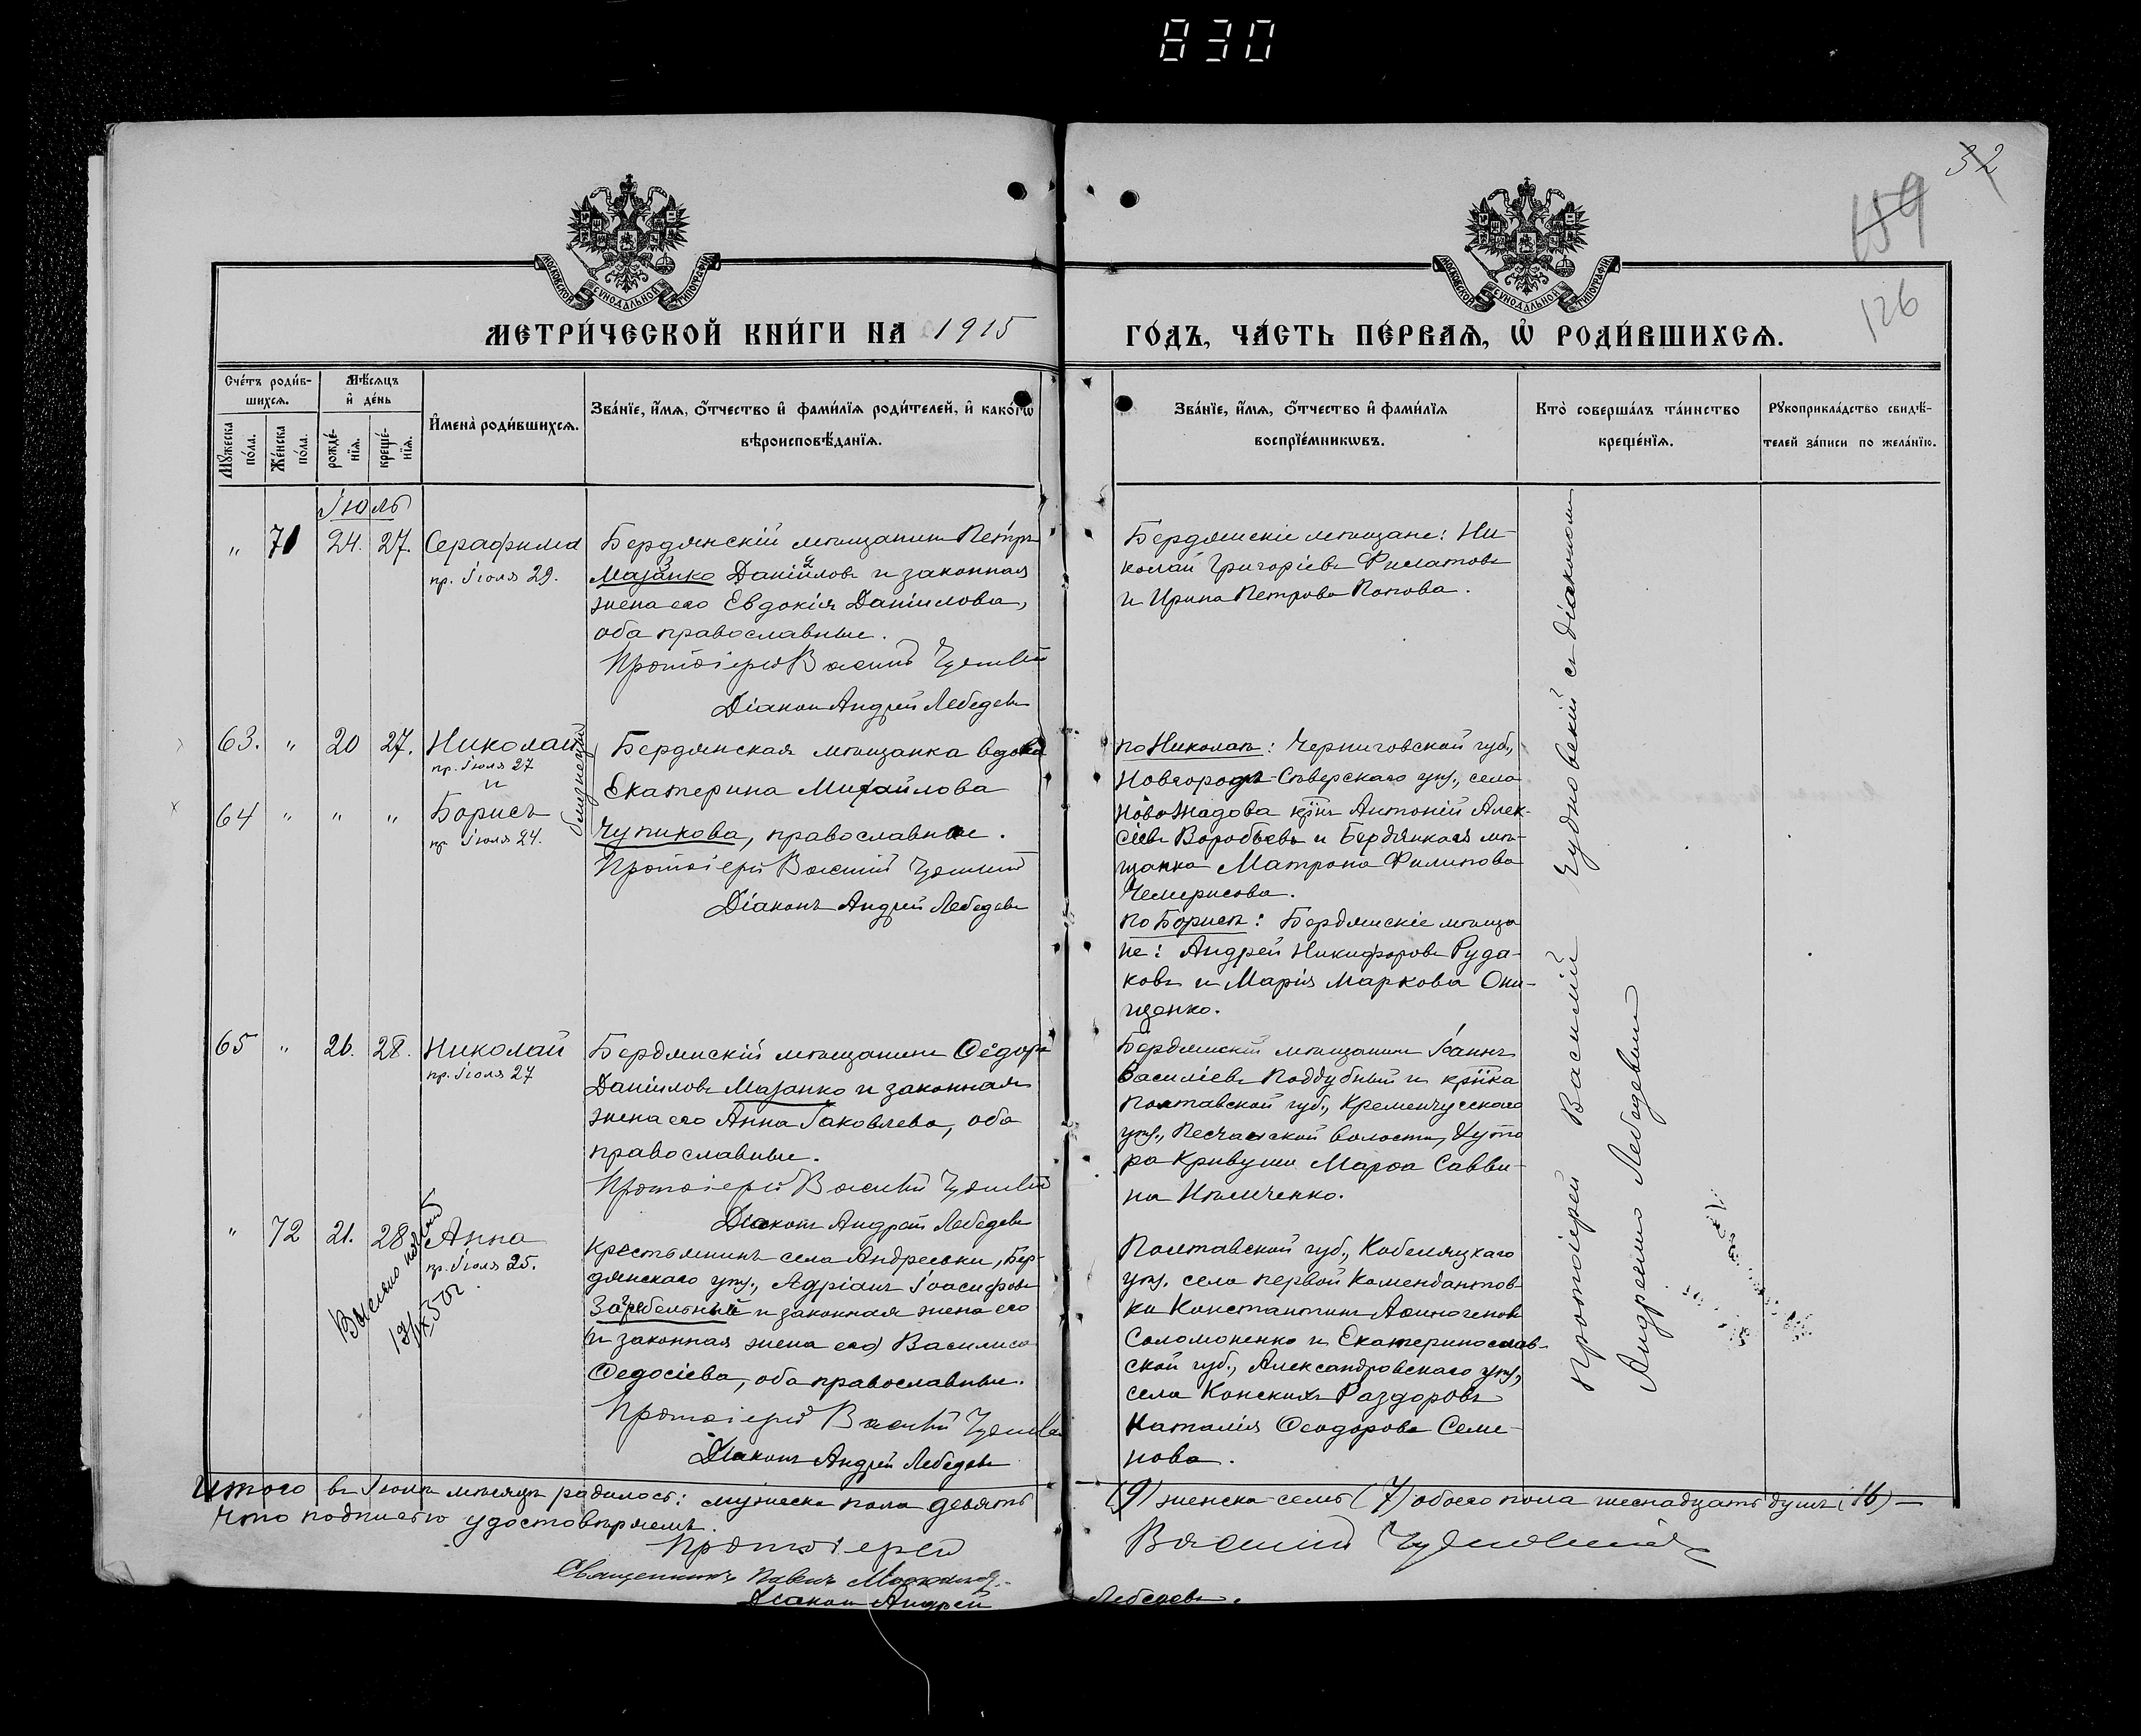 830
32
159
126
МОСКОВСКОЙ СУНОДАЛЬНОЙ ТИПОГРАФІИ
МОСКОВСКОЙ СУНОДАЛЬНОЙ ТИПОГРАФІИ
МЕТРИ́ЧЕСКОЙ КНИ́ГИ НА 1915
ГО́ДЪ, ЧА́СТЬ ПЕ́РВАѦ, Ѡ҆ РОДИ́ВШИХСѦ.
Сче́тъ роди́в-
шихсѧ.
Мѣ́сѧцъ
и҆ де́нь
Мꙋ́жеска по́ла.
Же́нска по́ла.
рожде́-
нїѧ.
креще́-
нїѧ.
И҆мена̀ роди́вшихсѧ.
Зва́нїе, и҆́мѧ, ѻ҆́тчество и҆ фами́лїѧ роди́телей, и҆ како́гѡ
вѣроисповѣ́данїѧ.
Зва́нїе, и҆́мѧ, ѻ҆́тчество и҆ фами́лїѧ
воспрїе́мникѡвъ.
Кто̀ соверша́лъ та́инство
креще́нїѧ.
Рꙋкоприкла́дство свидѣ́-
телей за́писи по жела́нїю.
Іюль
" 71 24. 27. Серафима
пр. Іюля 29.
Бердянскій мѣщанинъ Петръ
Мазанко Даніиловъ и законная
жена его Евдокія Даніилова,
оба православные.
Протоіерей Василій Чудновскій
Діаконъ Андрей Лебедевъ
Бердянскіе мѣщане: Ни-
колай Григорьевъ Филатовъ
и Ирина Петрова Попова.
63. " 20 27. Николай
пр. Іюля 27
и
64 " " " Борисъ
пр. Іюля 24.
близнецы
Бердянская мѣщанка вдова
Екатерина Михайлова
Чупикова, православная.
Протоіерей Василій Чудновскій
Діаконъ Андрей Лебедевъ
по Николаѣ: Черниговской губ.,
Новгородъ-Сѣверскаго уѣз., села
кр͠нъ Антоній Алек-
сіевъ Воробьевъ и Бердянская мѣ-
щанка Матрона Филипова
Чемерисова.
по Борисѣ: Бердянскіе мѣща
не: Андрей Никифоровъ Руда-
ковъ и Марія Маркова Они-
щенко.
65 " 26. 28. Николай
пр. Іюля 27
Бердянскій мѣщанинъ Ѳедоръ
Даніиловъ Мазанко и законная
жена его Анна Іаковлева, оба
православные.
Протоіерей Василій Чудновскій
Діаконъ Андрей Лебедевъ
Бердянскій мѣщанинъ Іоаннъ
Василіевъ Поддубный и кр͠нка
Полтавской губ., Кременчугскаго
уѣз., Песчанской волости, Хуто
ра Кривуши Марѳа Савви-
на
" 72 21. 28 Анна
пр. Іюля 25.
Крестьянинъ села Андреевки, Бер-
дянскаго уѣз., Адріанъ Іоасифовъ
Загребельный и законная жена его
(и законная жена его) Василиса
Ѳедосіева, оба православные.
Протоіерей Василій Чудновскій
Діаконъ Андрей Лебедевъ
Полтавской губ., Кобеляцкаго
уѣз. села первой Комендантов-
ки Константинъ Аѳиногеновъ
Соломоненко и Екатеринослав-
ской губ., Александровскаго уѣз.,
села Конскихъ Раздоровъ
Наталія Ѳеодорова Семе-
нова.
Протоіерей Василій Чудновскій съ діакономъ
Андреемъ Лебедевымъ
Итого въ Іюлѣ мѣсяцѣ родилось: мужеска пола девять
(9) женска-семь (7) обоего пола шеснадцать душъ (16) —
Что подписью удостовѣряемъ.
Протоіерей
Василій Чудновскій
Священникъ Павелъ
Діаконъ Андрей
Лебедевъ.